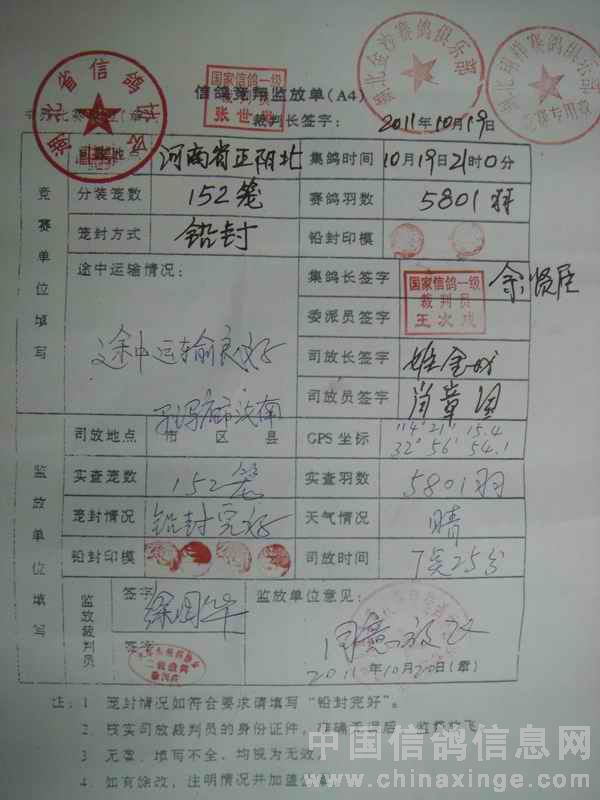 湖北省信鸽协会
国家信鸽一级
裁判员
张世
湖北金沙赛鸽俱乐部
信鸽竞翔监放单(A4)
裁判长签字: 2011年10月19日
河南省正阳北 集鸽时间 10月19日21时0分
竞赛单位填写
分装笼数 152笼 赛鸽羽数 5801羽
笼封方式 铅封 铅封印模
途中运输情况: 集鸽长签字 余贤臣
途中运输良好
国家信鸽一级
裁判员
王次成
委派员签字
司放长签字
司放员签字
司放地点 市 区 县 汝南 GPS坐标 114°21′15.4
32°56′54.1
监放单位填写
实查笼数 152笼 实查羽数 5801羽
笼封情况 铅封完好 天气情况 晴
铅封印模 司放时间 7点25分
监放裁判员
签字 监放单位意见:
签字 同意放飞
2011年10月20日(章)
注: 1 笼封情况如符合要求请填写"铅封完好"。
2. 核实司放裁判员的身份证件,准确无误后,监督放飞
3 无章、填写不全,均视为无效。
4. 如有涂改,注明情况并加盖公章
中国信鸽信息网
www.chinaxinge.com